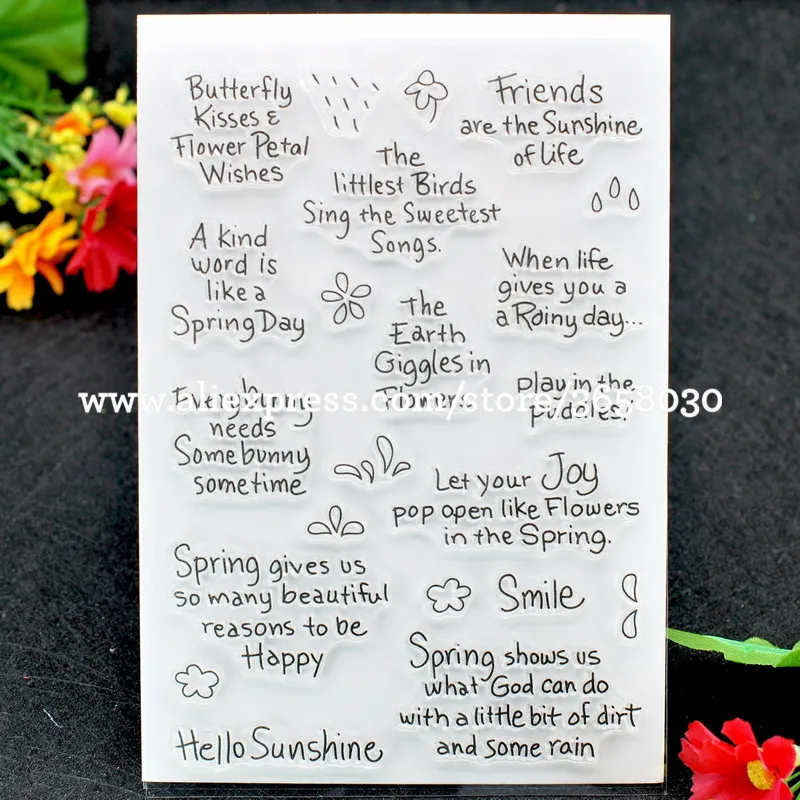 Butterfly
Kisses &
Flower Petal
Wishes
Friends
are the Sunshine
of life
The
littlest Birds
Sing the Sweetest
Songs.
A kind
word is
like a
Spring Day
When life
gives you a
a Rainy day...
The
Earth
Giggles in
Flowers
play in the
puddles!
www.aliexpress.com/store/3658030
Everybunny
needs
Somebunny
sometime
Let your Joy
pop open like Flowers
in the Spring.
Spring gives us
so many beautiful
reasons to be
Happy
Smile
Spring shows us
what God can do
with a little bit of dirt
and some rain
Hello Sunshine